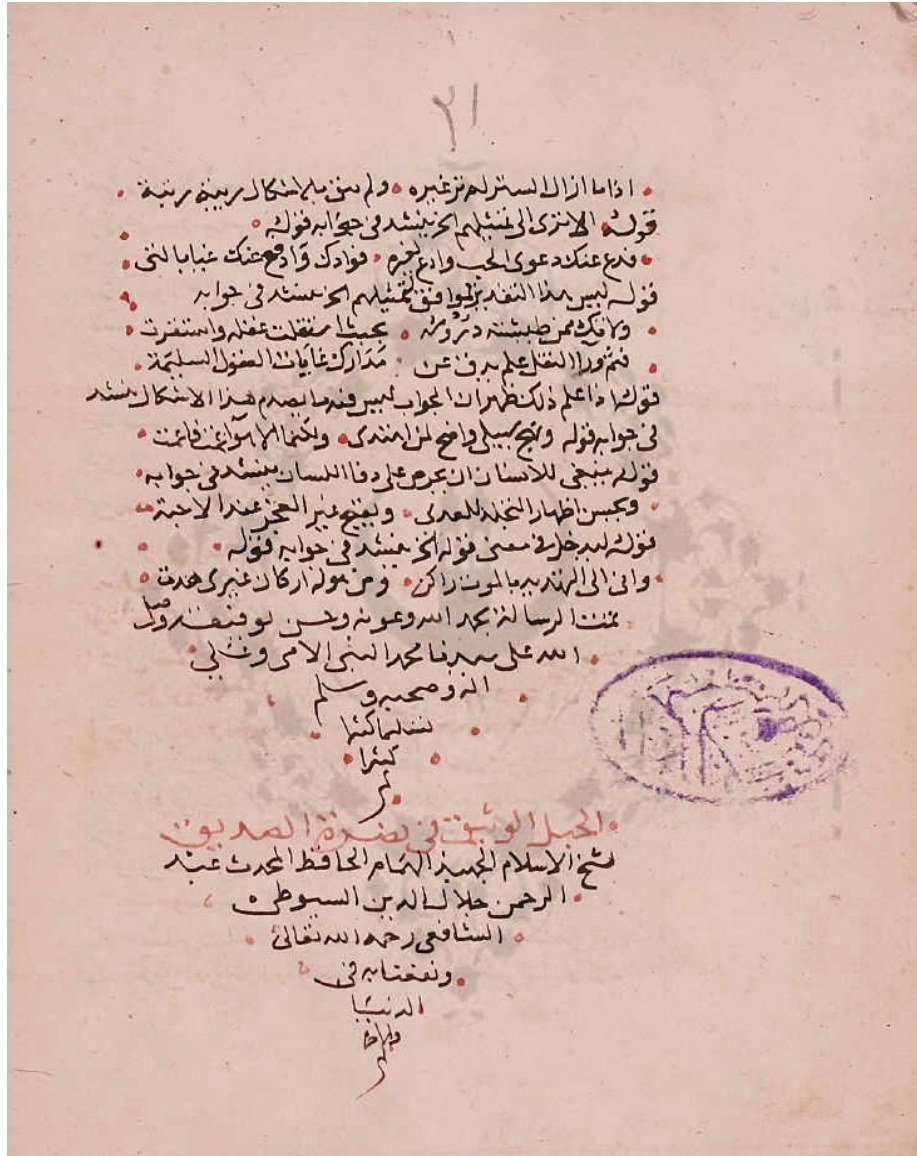 ٢١
اذا ما ازال الستر لم تر غيره ولم يبق بالاشكال ريبة
قوله الا ترى الى تمثيلهم الخ ينشد في جوابه قوله
فدع عنك دعوى الحب وادع لغيره فؤادك وادفع عنك غيك بالتي
قوله ليس هذا التقدير موافق لتمثيلهم الخ ينشد في جوابه
ولا تك ممن طيشته دروسه بحيث استقلت عقله واستفزت
فثم ورا النقل علم يدق عن مدارك غايات العقول السليمة
قوله اذا علم ذلك ظهر ان الجواب ليس فيه ما يصدم هذا الاشكال ينشد
في جوابه قوله ونهج سبيلي واضح لمن اهتدى ولكنها الاهوا عمت فاعمت
قوله ينبغي للانسان ان يحرص على دفا اللسان ينشد في جوابه
ويحسن اظهار التجلد للعدى ويقبح غير العجز عند الاحبة
قوله ليدخل في معنى قوله الخ ينشد في جوابه قوله
واني الى التهديد بالموت راكن ومن هوله اركان غيري هدت
تمت الرسالة بحمد الله وعونه وحسن توفيقه وصلى
الله على سيدنا محمد النبي الامي وعلى
اله وصحبه وسلم
تسليما كثيرا
كثيرا
م
الحبل الوثيق في نصرة الصديق
لشيخ الاسلام الجهبذ الهمام الحافظ المحدث عبد
الرحمن جلال الدين السيوطي
الشافعي رحمه الله تعالى
ونفعنا به في
الدنيا
والاخرة
م